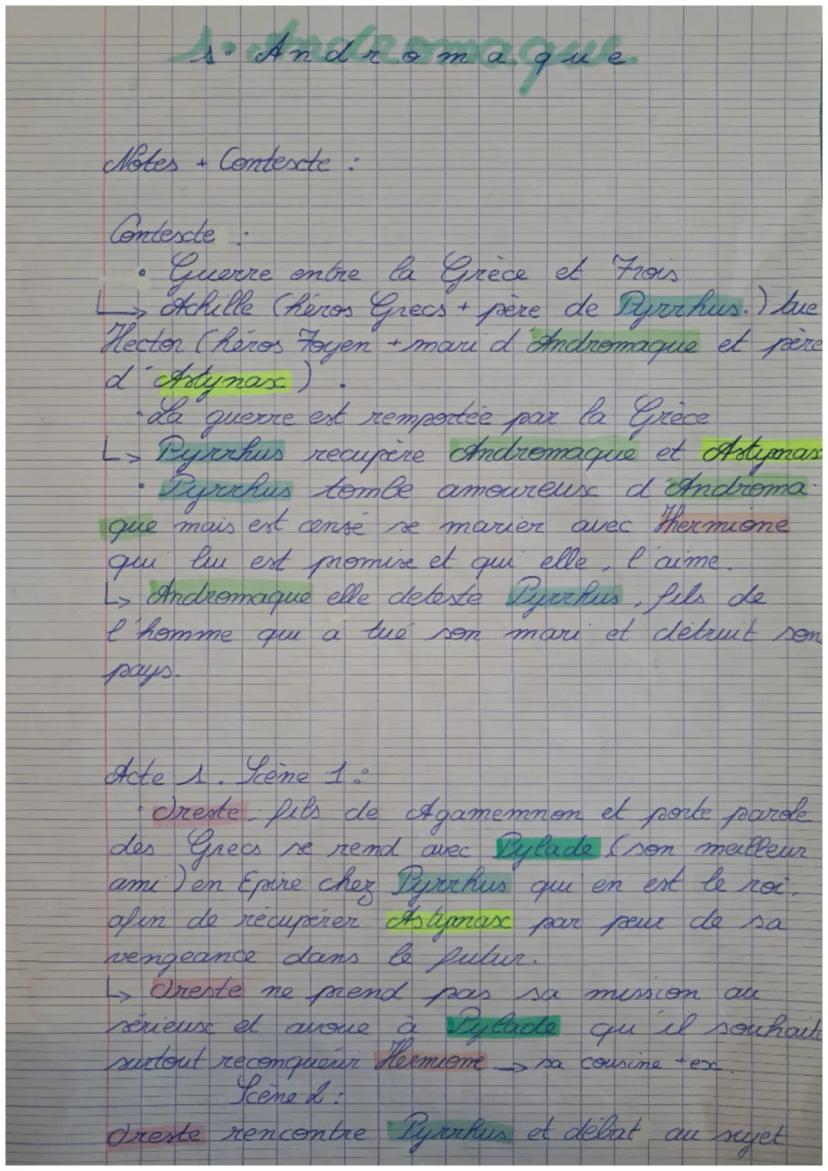 1. Andromaque
Notes + Contexte :
Contexte :
• Guerre entre la Grèce et Trois
↳ Achille (héros Grecs + père de Pyrrhus.) tue
Hector (héros Toyen + mari d'Andromaque et père
d'Astynax).
• La guerre est remportée par la Grèce
↳ Pyrrhus recupère Andromaque et Astynax
• Pyrrhus tombe amoureux d'Androma-
que mais est censé se marier avec Hermione
qui lui est promise et qui elle, l'aime.
↳ Andromaque elle deteste Pyrrhus, fils de
l'homme qui a tué son mari et détruit son
pays.
Acte 1. Scène 1 :
• Oreste, fils de Agamemnon et porte parole
des Grecs se rend avec Pylade (son meilleur
ami) en Epire chez Pyrrhus qui en est le roi.
afin de récupérer Astynax par peur de sa
vengeance dans le futur.
↳ Oreste ne prend pas sa mission au
sérieux et avoue à Pylade qu'il souhait
surtout reconquérir Hermione → sa cousine + ex.
Scène 2 :
Oreste rencontre Pyrrhus et débat au sujet